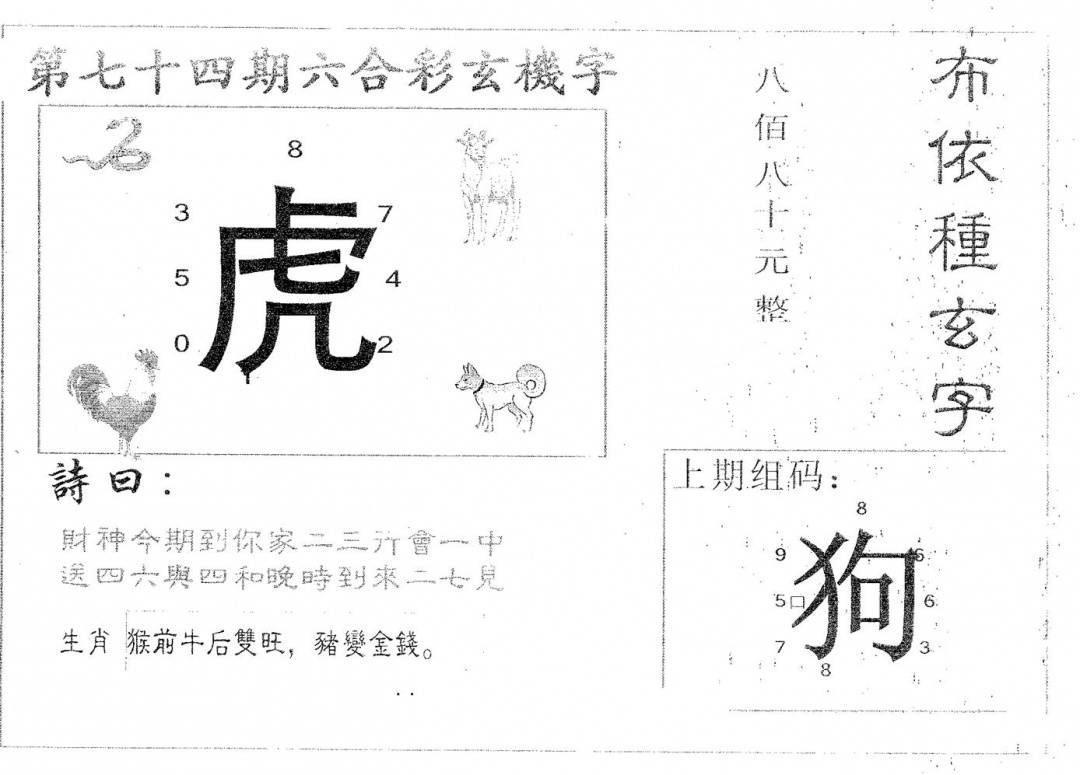 第七十四期六合彩玄機字
8
3
7
虎
5
4
0
2
詩曰：
財神今期到你家二三行會一中
送四六與四和晚時到來二七見
生肖 猴前牛后雙旺，豬變金錢。
布依種玄字
八佰八十元整
上期组码：
8
9
6
狗
5口
6
7
3
8